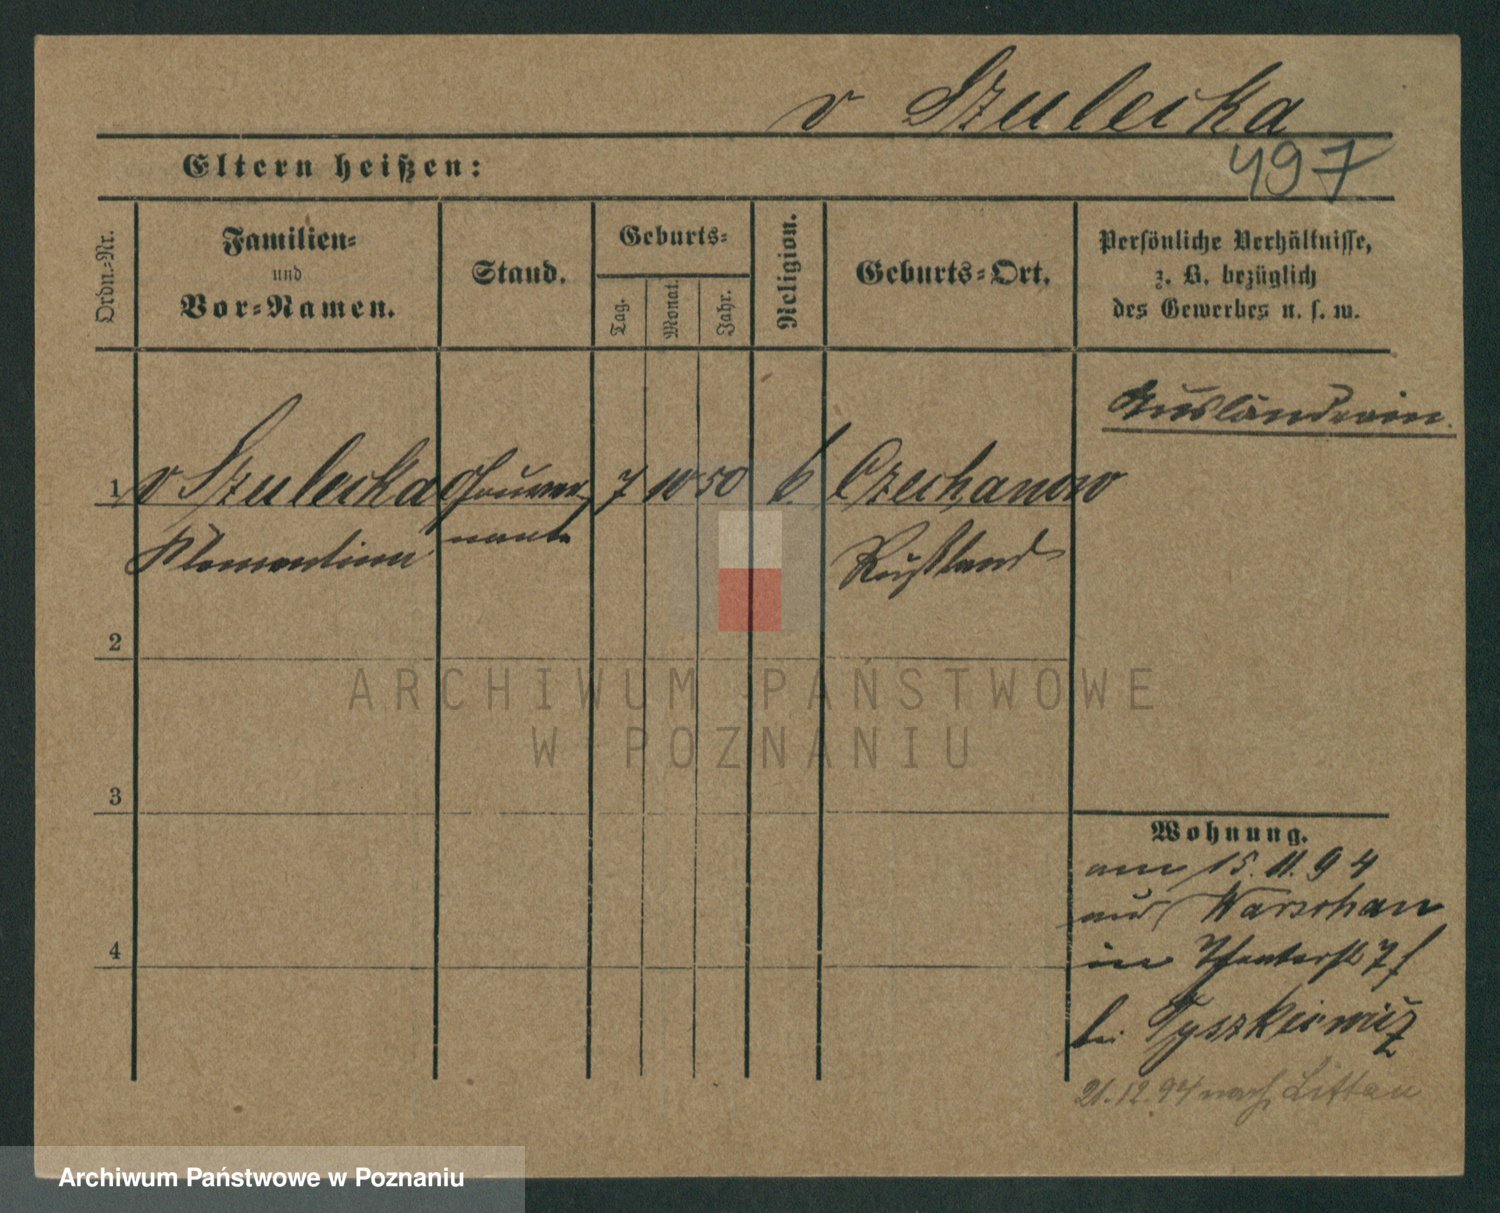 v Szulecka
497
Eltern heißen:
Ordn.-Nr.
Familien-
und
Vor-Namen.
Stand.
Geburts-
Tag.
Monat.
Jahr.
Religion.
Geburts-Ort.
Persönliche Verhältnisse,
z. B. bezüglich
des Gewerbes u. s. w.
Ausländerin.
1 v Szulecka Gouver- 7 10 50 Czechanow
Klementine nante Rußland
2
3
4
Wohnung.
am 15.11.94
aus Warschau
in Theaterstr 7
bei Tyszkiewicz
21.12.94 nach Littau
ARCHIWUM PAŃSTWOWE
W POZNANIU
Archiwum Państwowe w Poznaniu